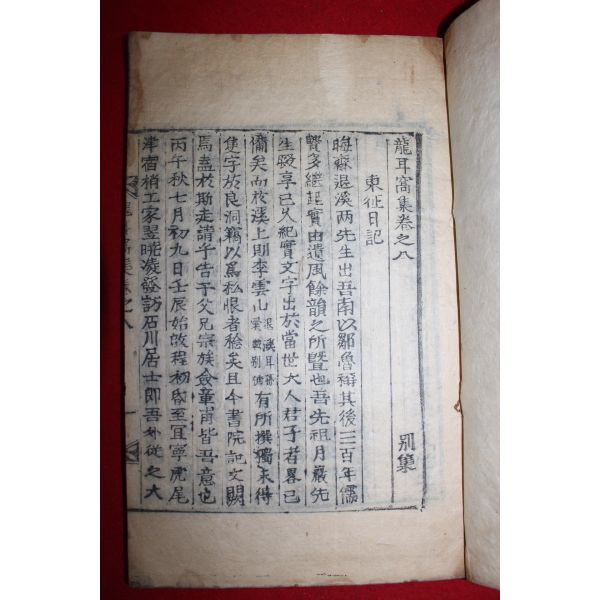 龍耳窩集卷之八
別集
東征日記
晦齋退溪两先生出吾南以鄒魯稱其後三百年儒
賢多継起實由遺風餘韻之所曁也吾先祖月巖先
生腏享已久紀實文字出於當世大人君子者畧已
備矣而於溪上則李雲山 彙載別號 有所撰獨未得
隻字於良洞竊以爲私恨者稔矣且今書院記文闕
焉盍於斯走請乎告于父兄宗族僉章甫皆吾意也
丙午秋七月初九日壬辰始啟程初昏至宜寧虎尾
津宿梢工家翌曉凌發訪石川居士卽吾外從之大